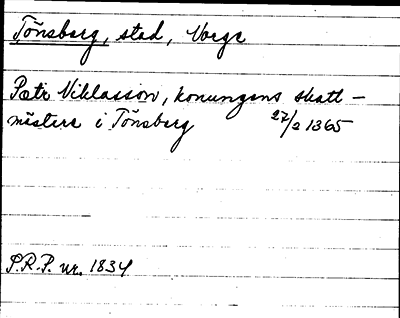 Tönsberg, stad, Norge
Pætr Niklasson, konungens skatt-
mästare i Tönsberg 27/2 1365
S.R.P. nr. 1834